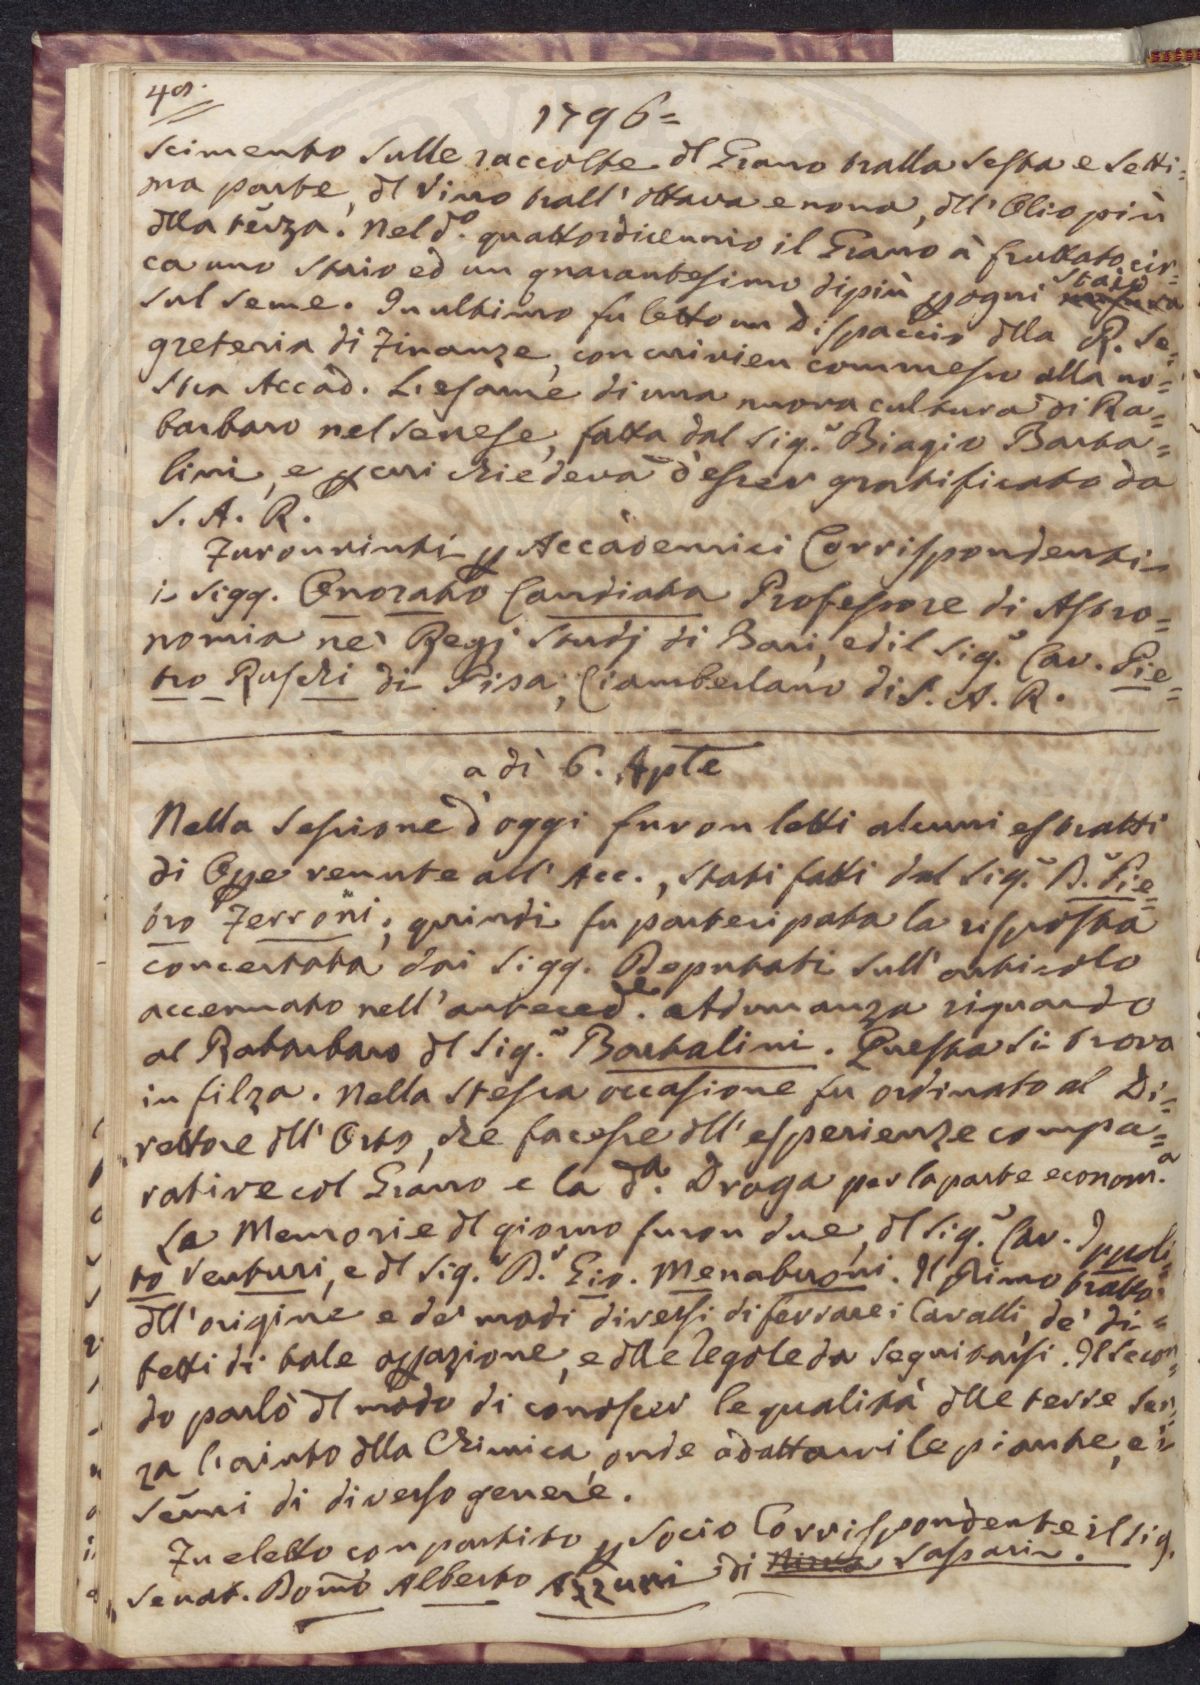 48.
1796=
scimento sulle raccolte dl Grano tralla sesta e setti=
ma parte, dl Vino trall' ottava e nona, dll' Olio più
dlla terza. Nel do. quattordicennio il Grano à fruttato cir=
ca uno staio ed un quarantesimo dipiù p ogni staio
sul seme. In ultimo fu letto un Dispaccio dlla R. Se=
greteria di Finanze, con cui vien commesso alla no=
stra Accad. L'esame di una nuova cultura di Ra=
barbaro nel senese, fatta dal Sigr. Biagio Barta=
lini, e p cui chiedeva d'esser gratificato da
S. A. R.
Furon vinti p Accademici Corrispondenti
i Sigg. Onorato Candiata Professore di Astro=
nomia ne' Regj Studj di Bari, ed il Sigr. Cav. Pie=
tro Ruschi di Pisa, Ciamberlano di S. A. R.
a dì 6. Aple
Nella sessione d'oggi furon letti alcuni estratti
di Ope venute all' Acc., stati fatti dal Sigr. Dr. Pie=
tro Ferroni; quindi fu partecipata la risposta
concertata dai Sigg. Deputati sull' articolo
accennato nell' anteced.e Adunanza riguardo
al Rabarbaro dl Sigr. Bartalini. Questa si trova
in filza. Nella stessa occasione fu ordinato al Di=
rettore dll' Orto, che facesse dll' esperienze compa=
rative col Grano e la da. Droga per la parte econom.a
Le Memorie dl giorno furon due, dl Sigr. Cav. Ippoli=
to Venturi, e dl Sigr. Dr. Gio. Menabuoni. Il primo trattò
dll' origine e de' modi diversi di ferrare i Cavalli, de' di=
fetti di tale opazione, e dlle regole da seguitarsi. Il secon=
do parlò dl modo di conoscer le qualità dlle terre sen=
za l'aiuto dlla Chimica, onde adattarvi le piante, e i
semi di diverso genere.
Fu eletto con partito p socio Corrispondente il Sig.
Senat. Domo Alberto Azzuni di Sassari.